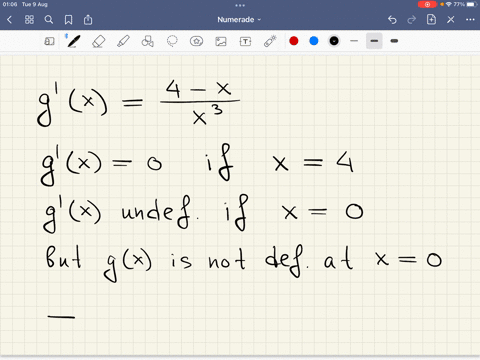 01:06 Tue 9 Aug
77%
Numerade
g'(x) = (4 - x)/x³
g'(x) = 0 if x = 4
g'(x) undef. if x = 0
but g(x) is not def. at x = 0